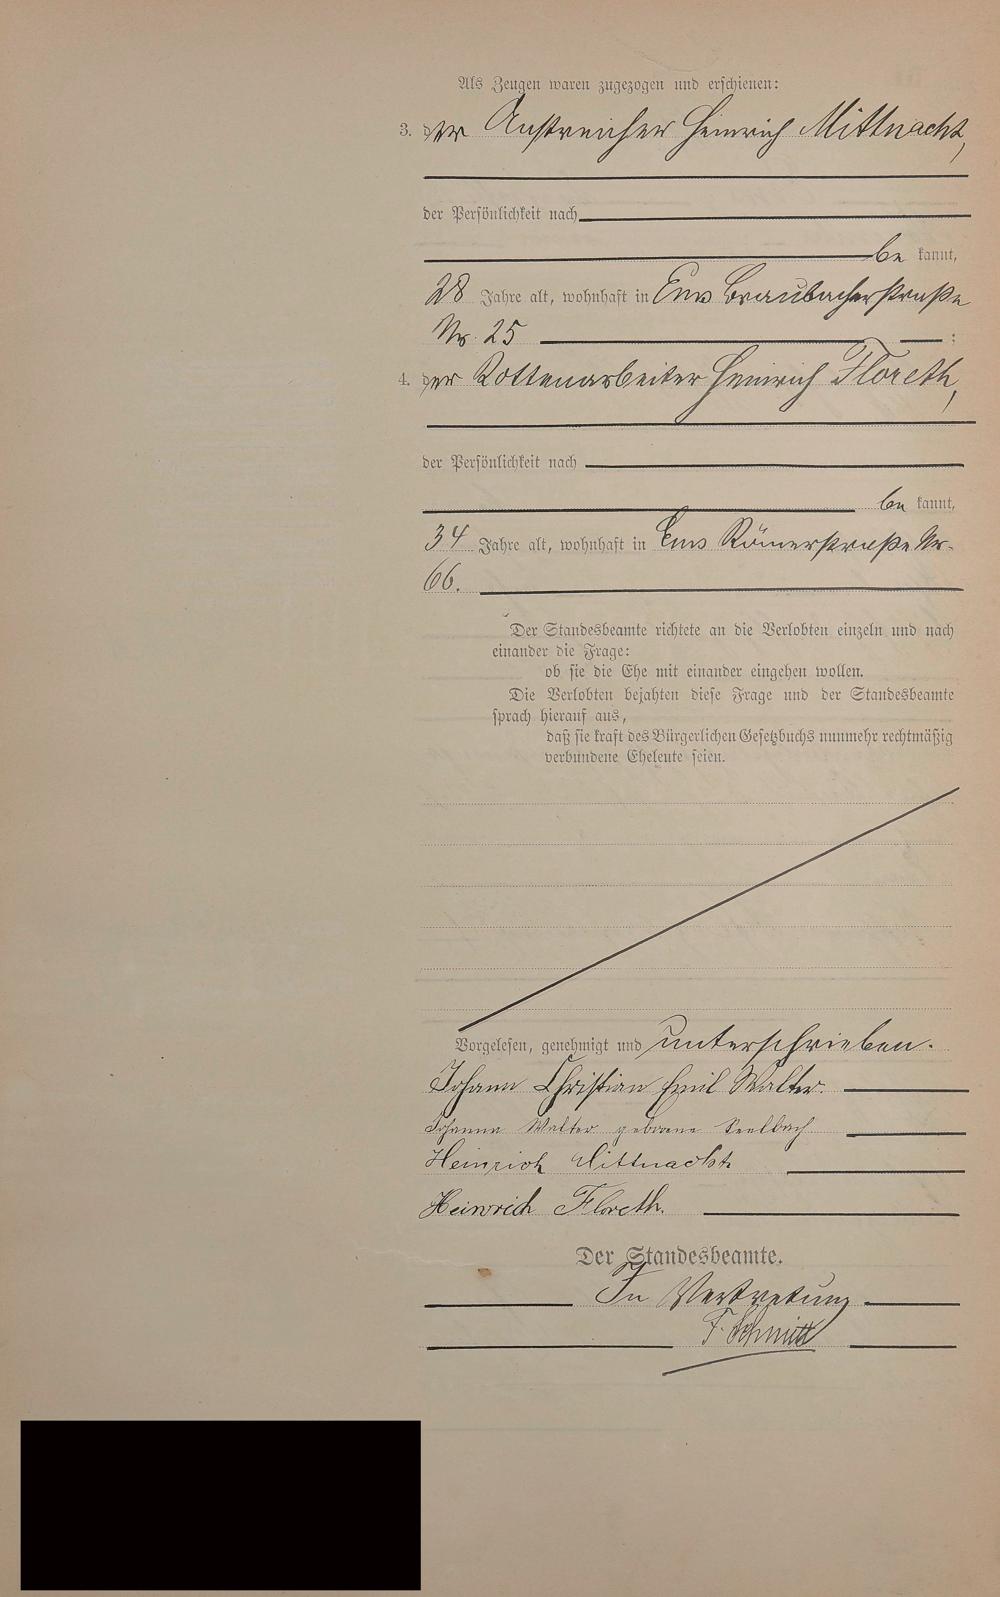 Als Zeugen waren zugezogen und erschienen:
3. der Anstreicher Heinrich Mittnacht,
der Persönlichkeit nach
be kannt,
28 Jahre alt, wohnhaft in Ems Braubacherstraße
Nr. 25 ;
4. der Rottenarbeiter Heinrich Floreth,
der Persönlichkeit nach
be kannt,
34 Jahre alt, wohnhaft in Ems Römerstraße Nr.
66.
Der Standesbeamte richtete an die Verlobten einzeln und nach
einander die Frage:
ob sie die Ehe mit einander eingehen wollen.
Die Verlobten bejahten diese Frage und der Standesbeamte
sprach hierauf aus,
daß sie kraft des Bürgerlichen Gesetzbuchs nunmehr rechtmäßig
verbundene Eheleute seien.
Vorgelesen, genehmigt und unterschrieben.
Johann Christian Emil Walter.
Johanna Walter geborene Seelbach
Heinrich Mittnacht
Heinrich Floreth.
Der Standesbeamte.
In Vertretung
F. Schmitt